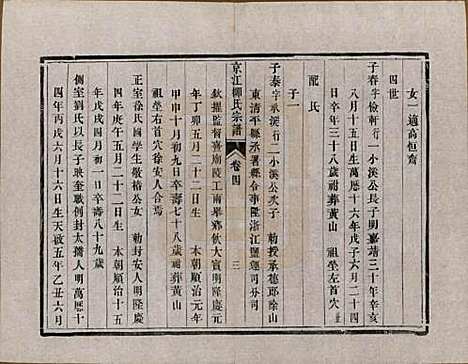 女一適高恒齋
四世
子春字儉軒行一小溪公長子明嘉靖三十年辛亥
八月十五日生明萬歷十六年戊子六月二十四
日卒年三十八歲祔葬黃山 祖塋左首穴
配氏
子一
子泰字承溪行二小溪公次子 勅授承德郎除山
東清平縣丞署縣令事陞浙江鹽運司分司
欽授監督喜廟陵工南畢鄉飲大賓明隆慶元
年丁卯五月二十二日生 本朝順治元年
甲申十月初九日卒壽七十八歲祔葬黃山
祖塋右首穴徐安人合焉
正室徐氏國學生敬椿公女 勅封安人明隆慶
四年庚午五月二十二日生 本朝順治十五
年戊戌四月初一日卒壽八十九歲
側室劉氏以長子映奎敕封太孺人明萬歷十
四年丙戌六月十六日生天啟五年乙丑六月
京江柳氏宗譜 卷四 三